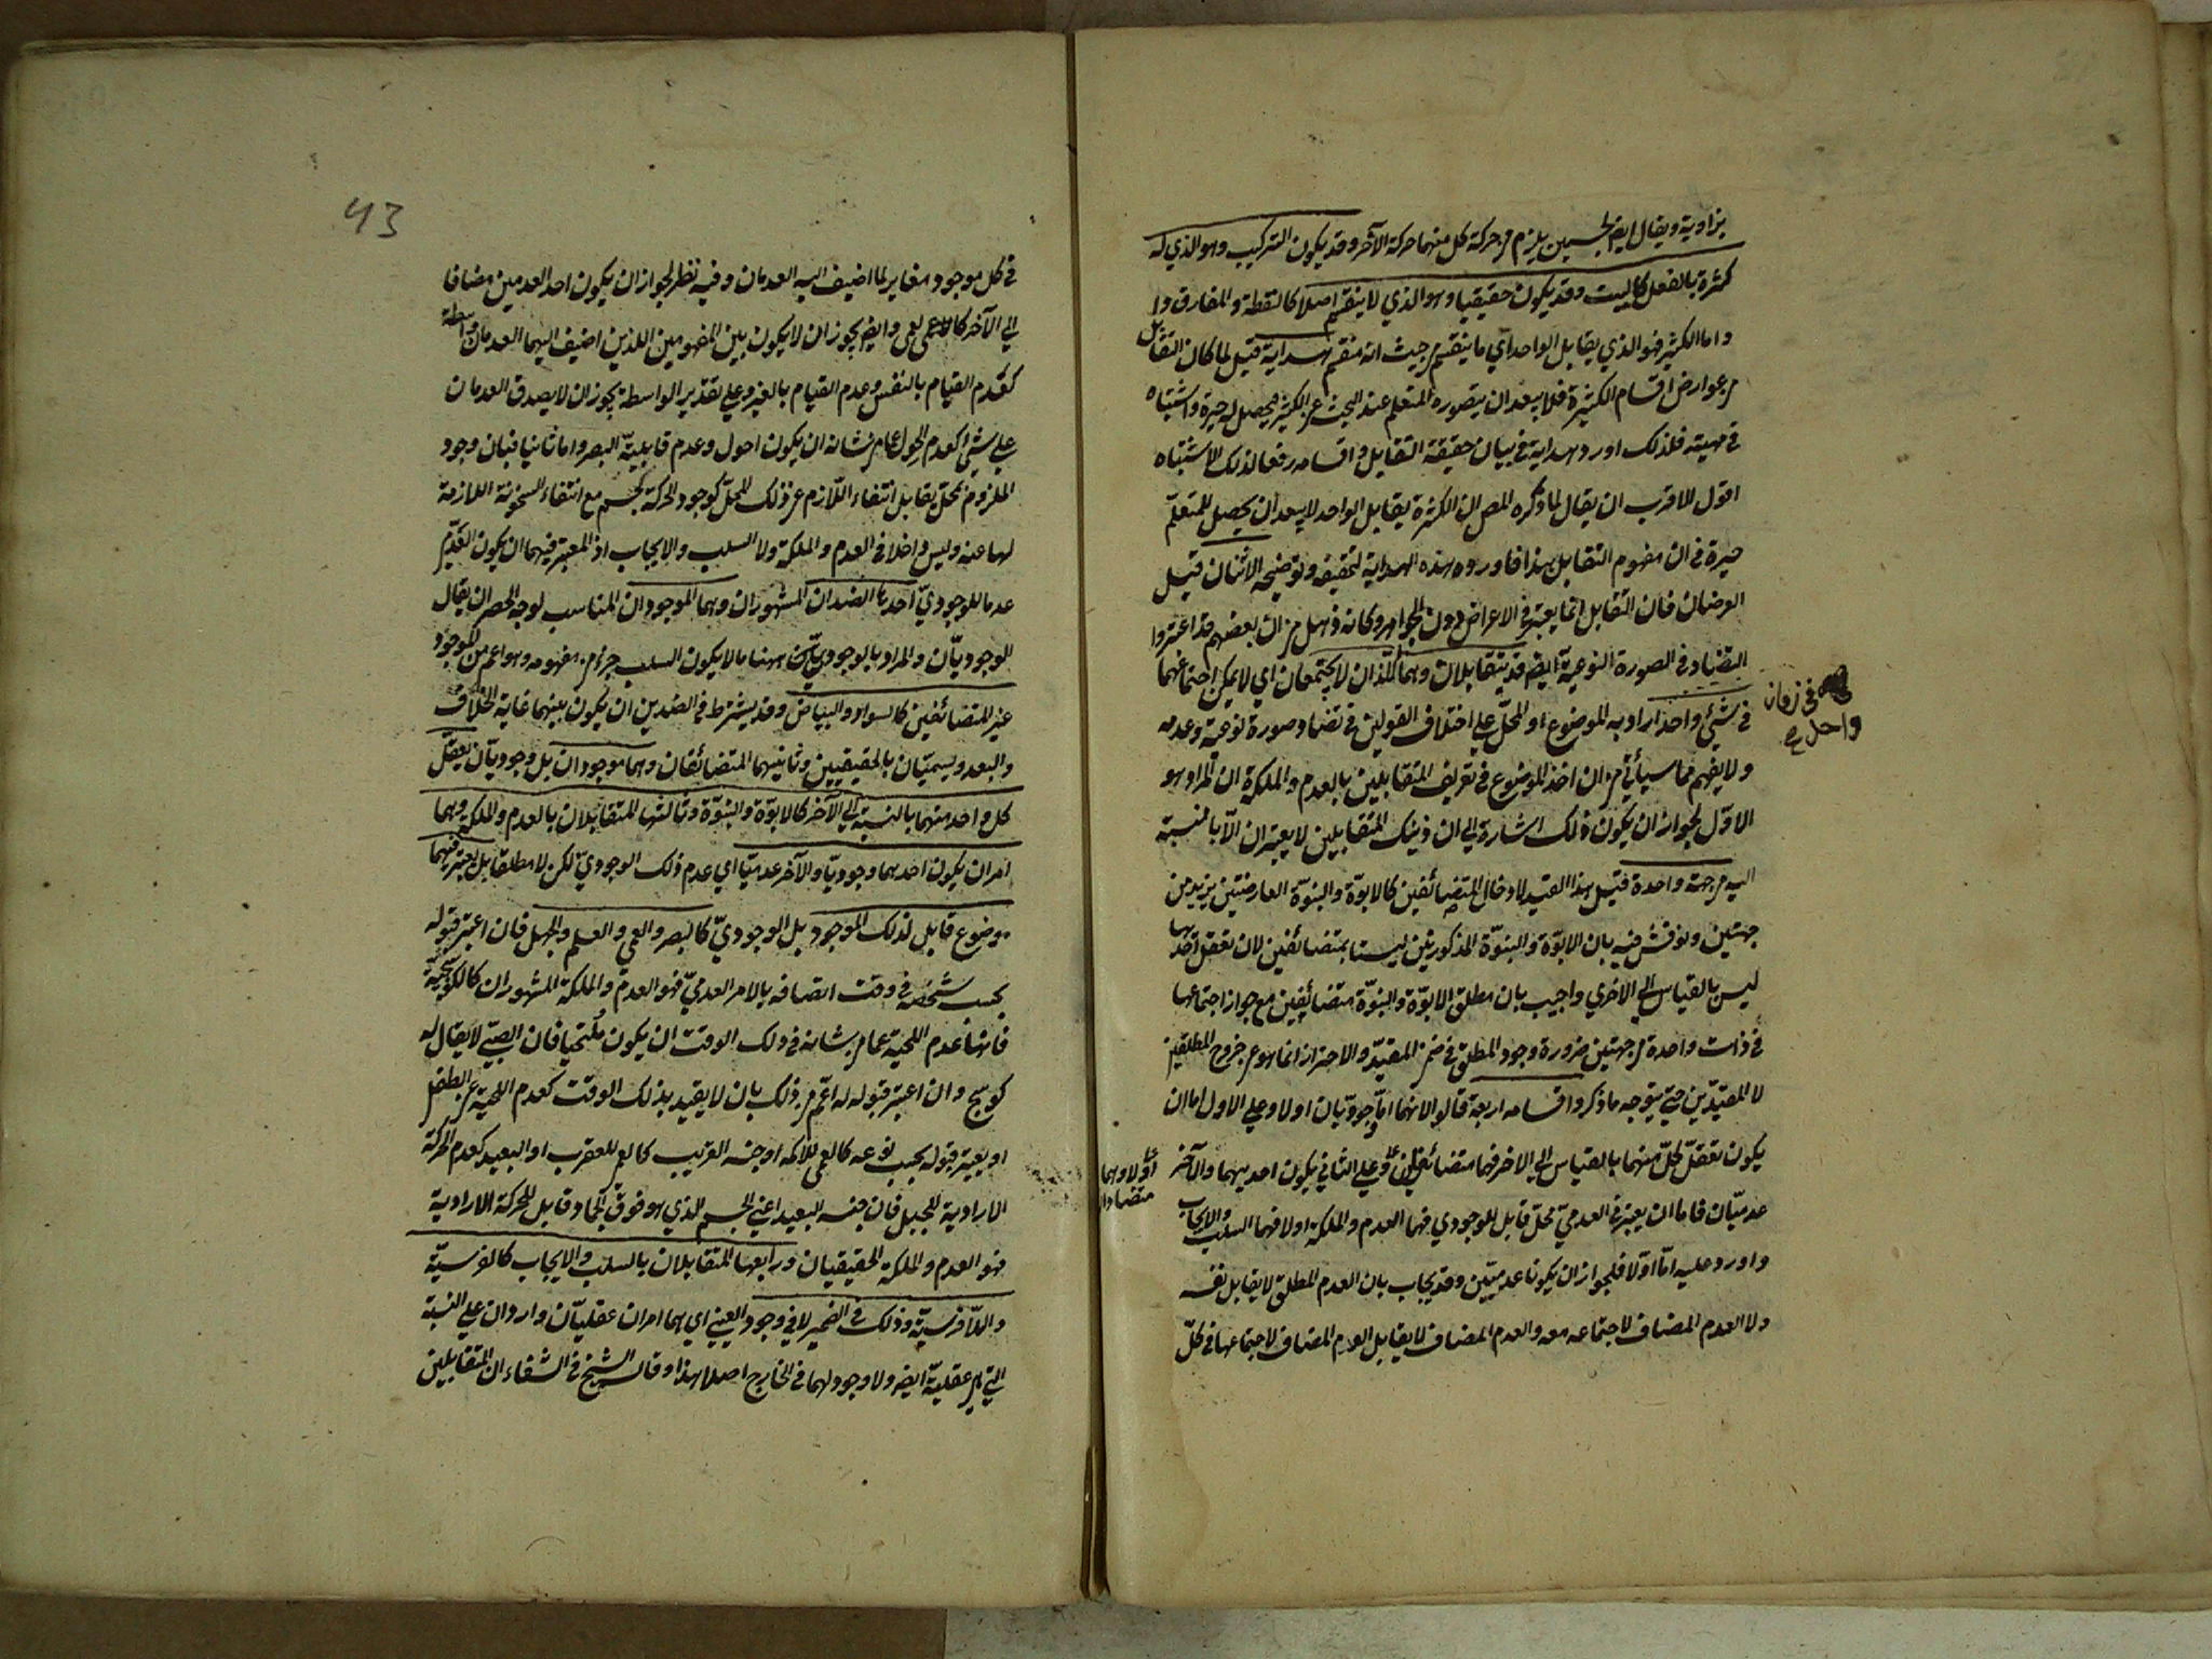 بزاوية ويقال ايضا لجسمين يلزم من حركة كل منهما حركة الآخر وقد يكون التركيب وهو الذي له
كثرة بالفعل كالبيت وقد يكون حقيقيا وهو الذي لا ينقسم اصلا كالنقطة والمفارق
واما الكثير فهو الذي يقابل الواحد اي ما ينقسم من حيث انه منقسم هداية قيل لما كان التقابل
من عوارض اقسام الكثيرة فلا يبعد ان يتصوره المتعلم عند البحث عن الكثير فيحصل له حيرة واشتباه
في مهيته فلذلك اورد هداية في بيان حقيقة التقابل واقسامه رفعا لذلك الاشتباه
اقول الاقرب ان يقال لما ذكره المص ان الكثرة يقابل الواحد لا يبعد ان يحصل للمتعلم
حيرة في ان مفهوم التقابل هذا فاورد هذه الهداية لتحقيقه وتوضيحه الاثنان قيل
العرضان فان التقابل انما يعتبر في الاعراض دون الجواهر وكانه ذهل من ان بعضهم قد اعتبروا
التضاد في الصورة النوعية ايضا قد يتقابلان وهما اللذان لا يجتمعان اي لا يمكن اجتماعهما
في زمان
واحد صح
في شيئ واحد اراد به الموضوع او المحل على اختلاف القولين في تضاد صورة نوعية وعدمه
ولا يفهم مما سيأتي من ان اخذ الموضوع في تعريف المتقابلين بالعدم والملكة ان المراد هو
الاول لجواز ان يكون ذلك اشارة الى ان ذينك المتقابلين لا يعتبران الا بالنسبة
اليه من جهة واحدة قيل هذا القيد لادخال المتضائفين كالابوة والبنوة العارضتين بزيد من
جهتين ونوقش فيه بان الابوة والبنوة المذكورتين ليستا بمتضائفين لان تعقل احدها
ليس بالقياس الى الاخري واجيب بان مطلق الابوة والبنوة متضائفين مع جواز اجتماعهما
في ذات واحدة من جهتين ضرورة وجود المطلق في ضمن المقيد والاحتراز انما هو عن خروج المطلقين
لا المقيدين حتى يتوجه ما ذكر واقسامه اربعة قالوا لانهما اما وجوديان اولا وعلى الاول اما ان
يكون تعقل كل منهما بالقياس الى الاخر فهما متضائفان وعلى الثاني يكون احديهما والآخر
اولا وهما
متضادان
عدميان فاما ان يعتبر في العدمي محل قابل للوجودي فهما العدم والملكة اولا فهما السلب والايجاب
واورد عليه اما اولا فلجواز ان يكونا عدميين وقد يجاب بان العدم المطلق لا يقابل نفسه
ولا العدم المضاف لاجتماعه معه والعدم المضاف لا يقابل العدم المضاف لاجتماعهما في كل
43
في كل موجود مغاير لما اضيف اليه العدمان وفيه نظر لجواز ان يكون احد العدمين مضافا
الى الآخر كالاعمى وايضا يجوز ان لا يكون بين المفهومين اللذين اضيف اليهما العدمان واسطة
كعدم القيام بالنفس وعدم القيام بالغير وعلى تقدير الواسطة يجوز ان لا يصدق العدمان
على شيئ كعدم الحول عما من شانه ان يكون احول وعدم قابلية البصر واما ثانيا فبان وجود
الملزوم لمحل يقابل انتفاء اللازم عن ذلك المحل كوجود الحركة لجسم مع انتفاء السخونة اللازمة
لها عنه وليس داخلا في العدم والملكة ولا السلب والايجاب اذ المعتبر فيهما ان يكون العدمي
عدما للوجودي احدها الضدان المشهوران وهما الموجودان المناسب لوجه الحصر ان يقال
الوجوديان والمراد بالوجوديين ههنا ما لا يكون السلب جزء من مفهومه وهو اعم من الموجود
غير المتضائفين كالسواد والبياض وقد يشترط في الضدين ان يكون بينهما غاية الخلاف
والبعد ويسميان بالحقيقيين وثانيهما المتضائفان وهما موجودان بل وجوديان يعقل
كل واحد منهما بالنسبة الى الآخر كالابوة والبنوة وثالثها المتقابلان بالعدم والملكة وهما
امران يكون احدهما وجوديا والآخر عدميا اي عدم ذلك الوجودي لكن لا مطلقا بل يعتبر فيهما
موضوع قابل لذلك الموجود بل الوجودي كالبصر والعمي والعلم والجهل فان اعتبر قبوله
بحسب شخصه في وقت اتصافه بالامر العدمي فهو العدم والملكة المشهوران كالكوسجية
فانها عدم اللحية عما من شانه في ذلك الوقت ان يكون ملتحيا فان الصبي لا يقال له
كوسج وان اعتبر قبوله له اعم من ذلك بان لا يقيد بذلك الوقت كعدم اللحية عن الطفل
او يعتبر قبوله بحسب نوعه كالعمى للاكمه او جنسه القريب كالعمى للعقرب او البعيد كعدم الحركة
الارادية للجبل فان جنسه البعيد اعني الجسم الذي هو فوق الجماد قابل للحركة الارادية
فهو العدم والملكة الحقيقيان ورابعها المتقابلان بالسلب والايجاب كالفرسية
واللافرسية وذلك في الضمير لا في وجود العيني اي هما امران عقليان واردان على النسبة
التي هي عقلية ايضا ولا وجود لهما في الخارج اصلا هذا وقال الشيخ في الشفاء ان المتقابلين